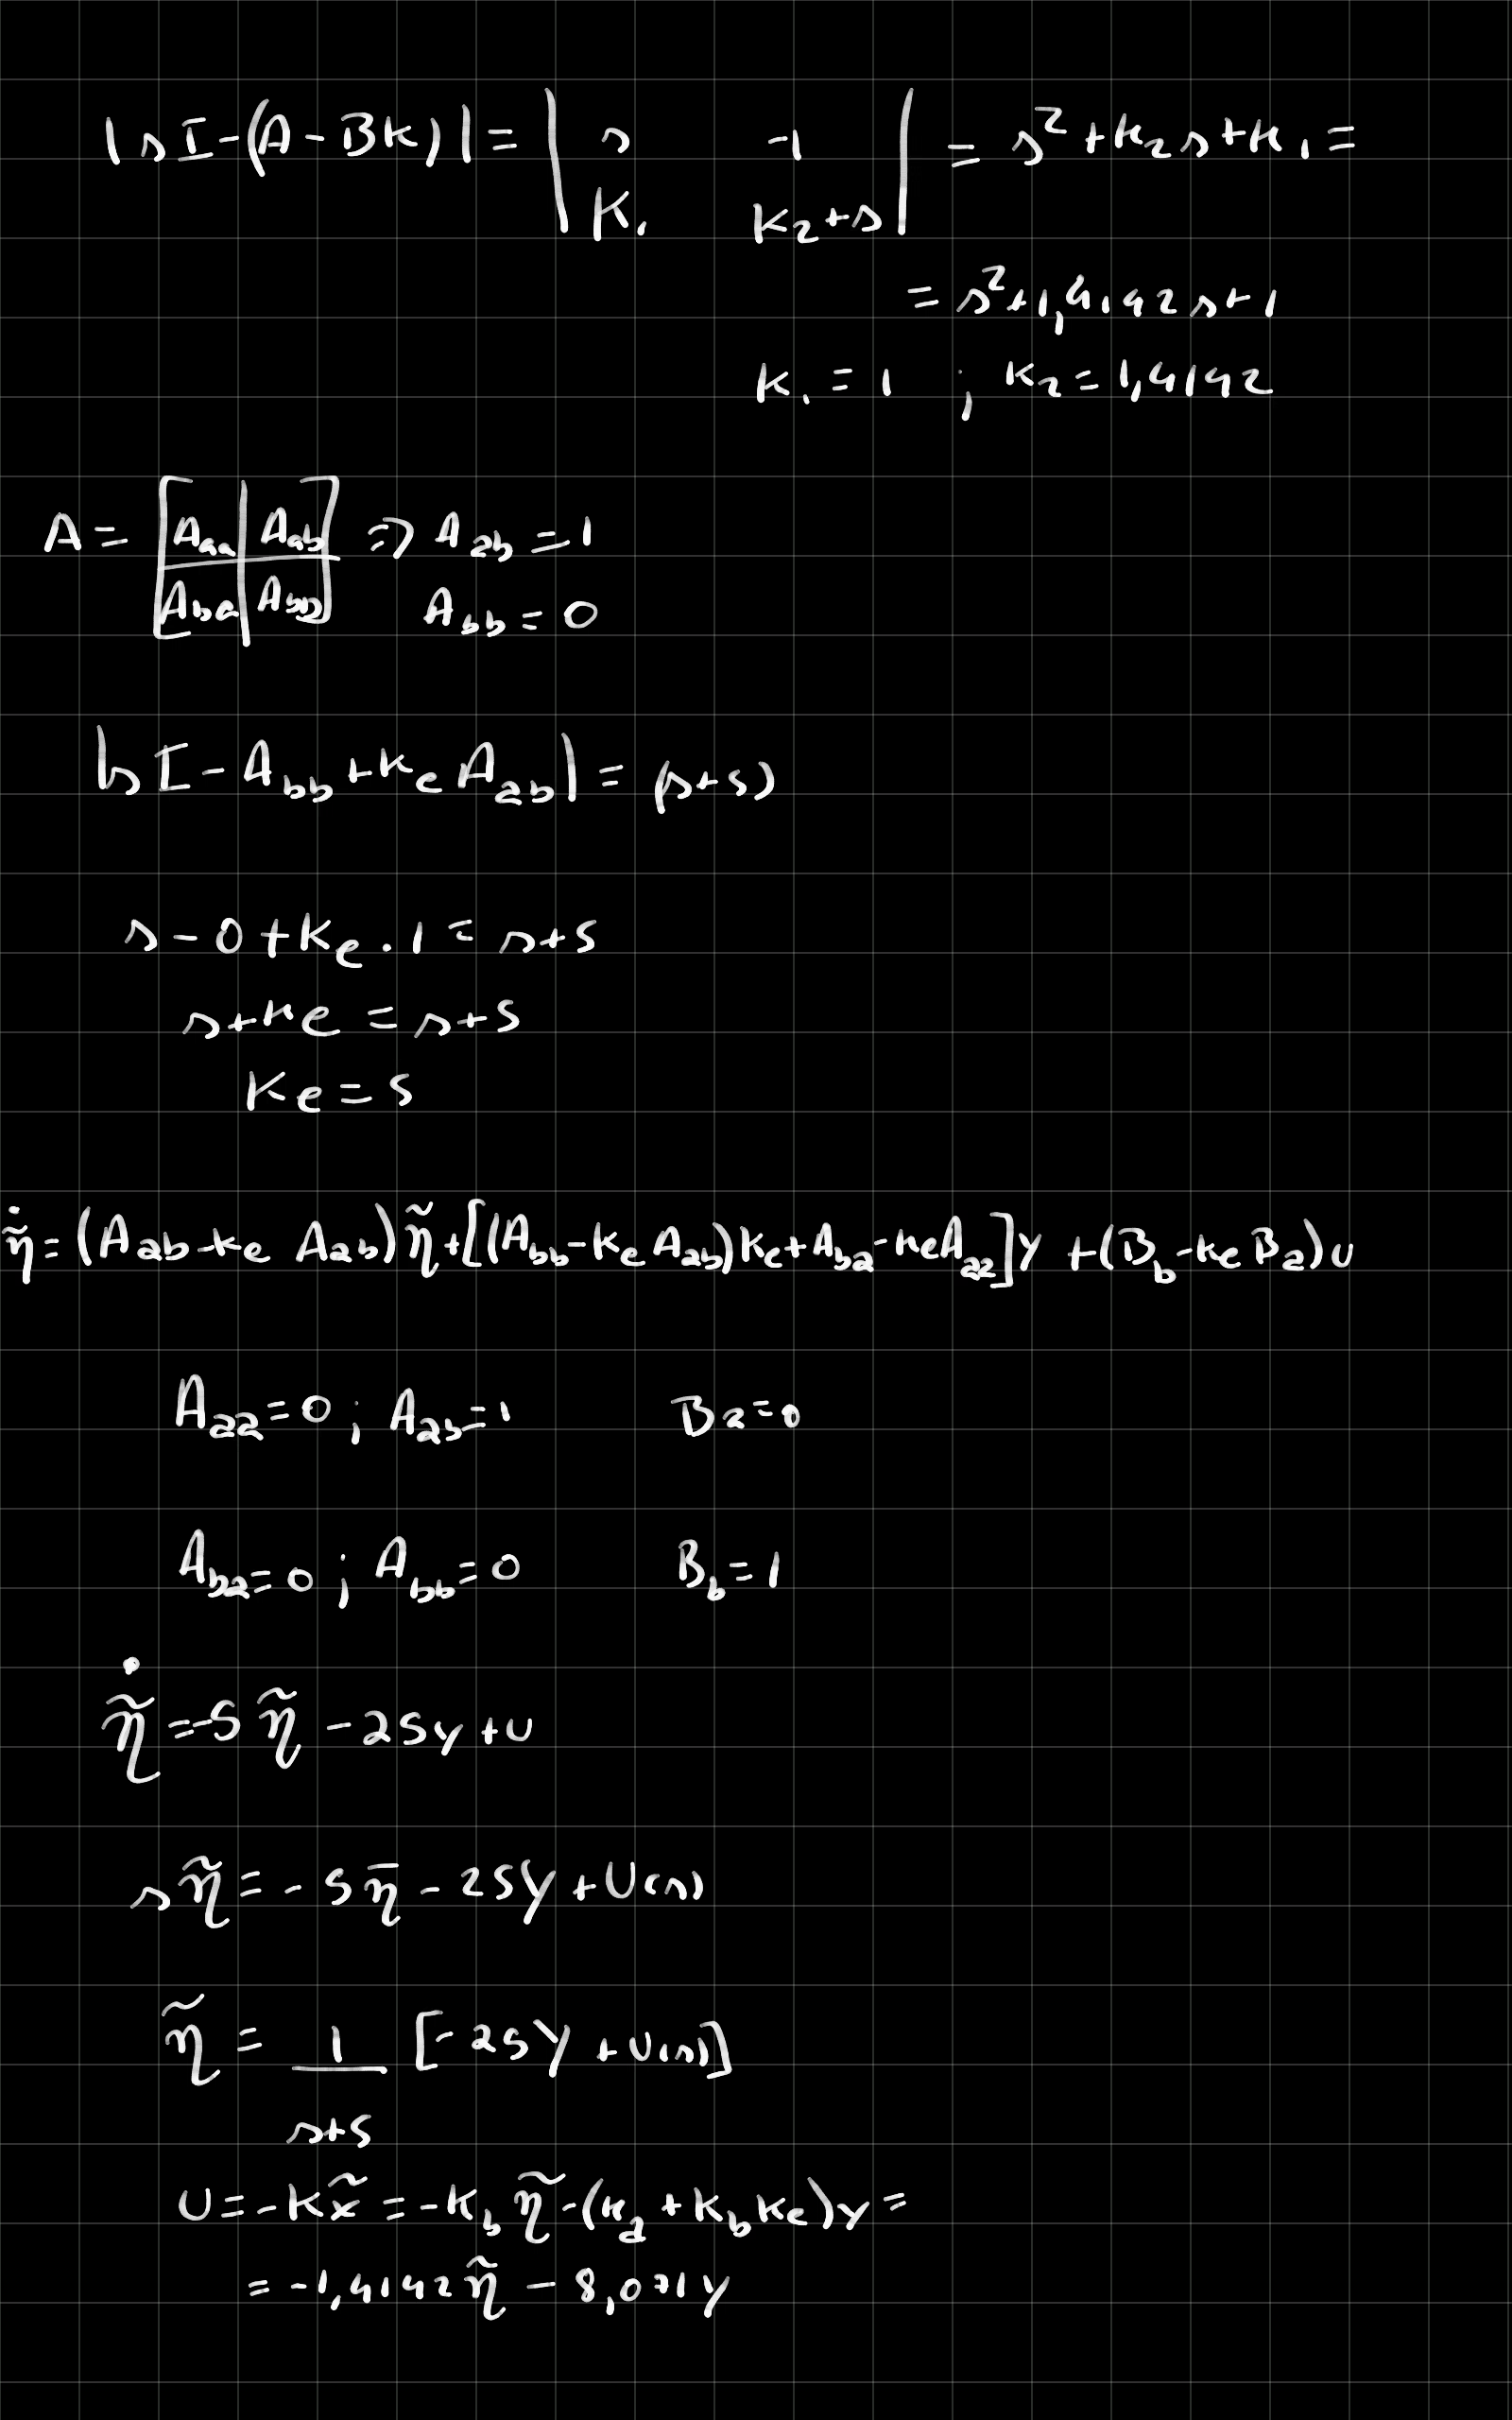 |sI-(A-BK)| = | s -1 | = s²+k₂s+k₁ =
| K₁ K₂+s |
= s²+1,4142s+1
K₁ = 1 ; K₂ = 1,4142
A = [Aaa | Aab] ⇒ Aab = 1
[Aba | Abb] Abb = 0
|sI - Abb + Ke Aab| = (s+5)
s - 0 + Ke . 1 = s+5
s+ke = s+5
Ke = 5
η̃̇ = (Aab-ke Aab)η̃ + [(Abb-ke Aab)Ke + Aba - keAaa]y + (Bb-ke Ba)u
Aaa = 0 ; Aab = 1 Ba = 0
Aba = 0 ; Abb = 0 Bb = 1
η̃̇ = -5 η̃ - 25y + u
s η̃ = -5 η̄ - 25Y + U(s)
η̃ = 1 [-25Y + U(s)]
s+5
U = -K x̃ = -Kb η̃ - (ka + kb ke)y =
= -1,4142 η̃ - 8,071y